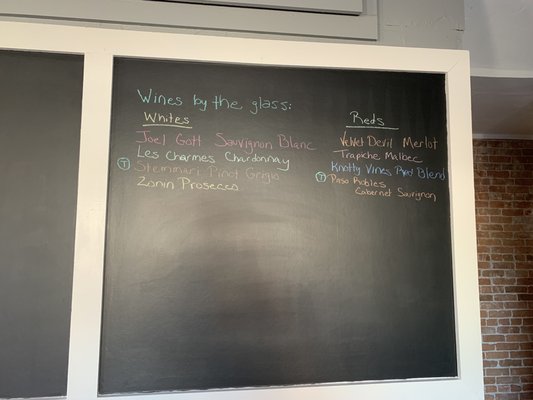 Wines by the glass:
Whites
Joel Gott Sauvignon Blanc
Les Charmes Chardonnay
T Stemmari Pinot Grigio
Zonin Prosecco
Reds
Velvet Devil Merlot
Trapiche Malbec
Knotty Vines Red Blend
T Paso Robles
Cabernet Sauvignon